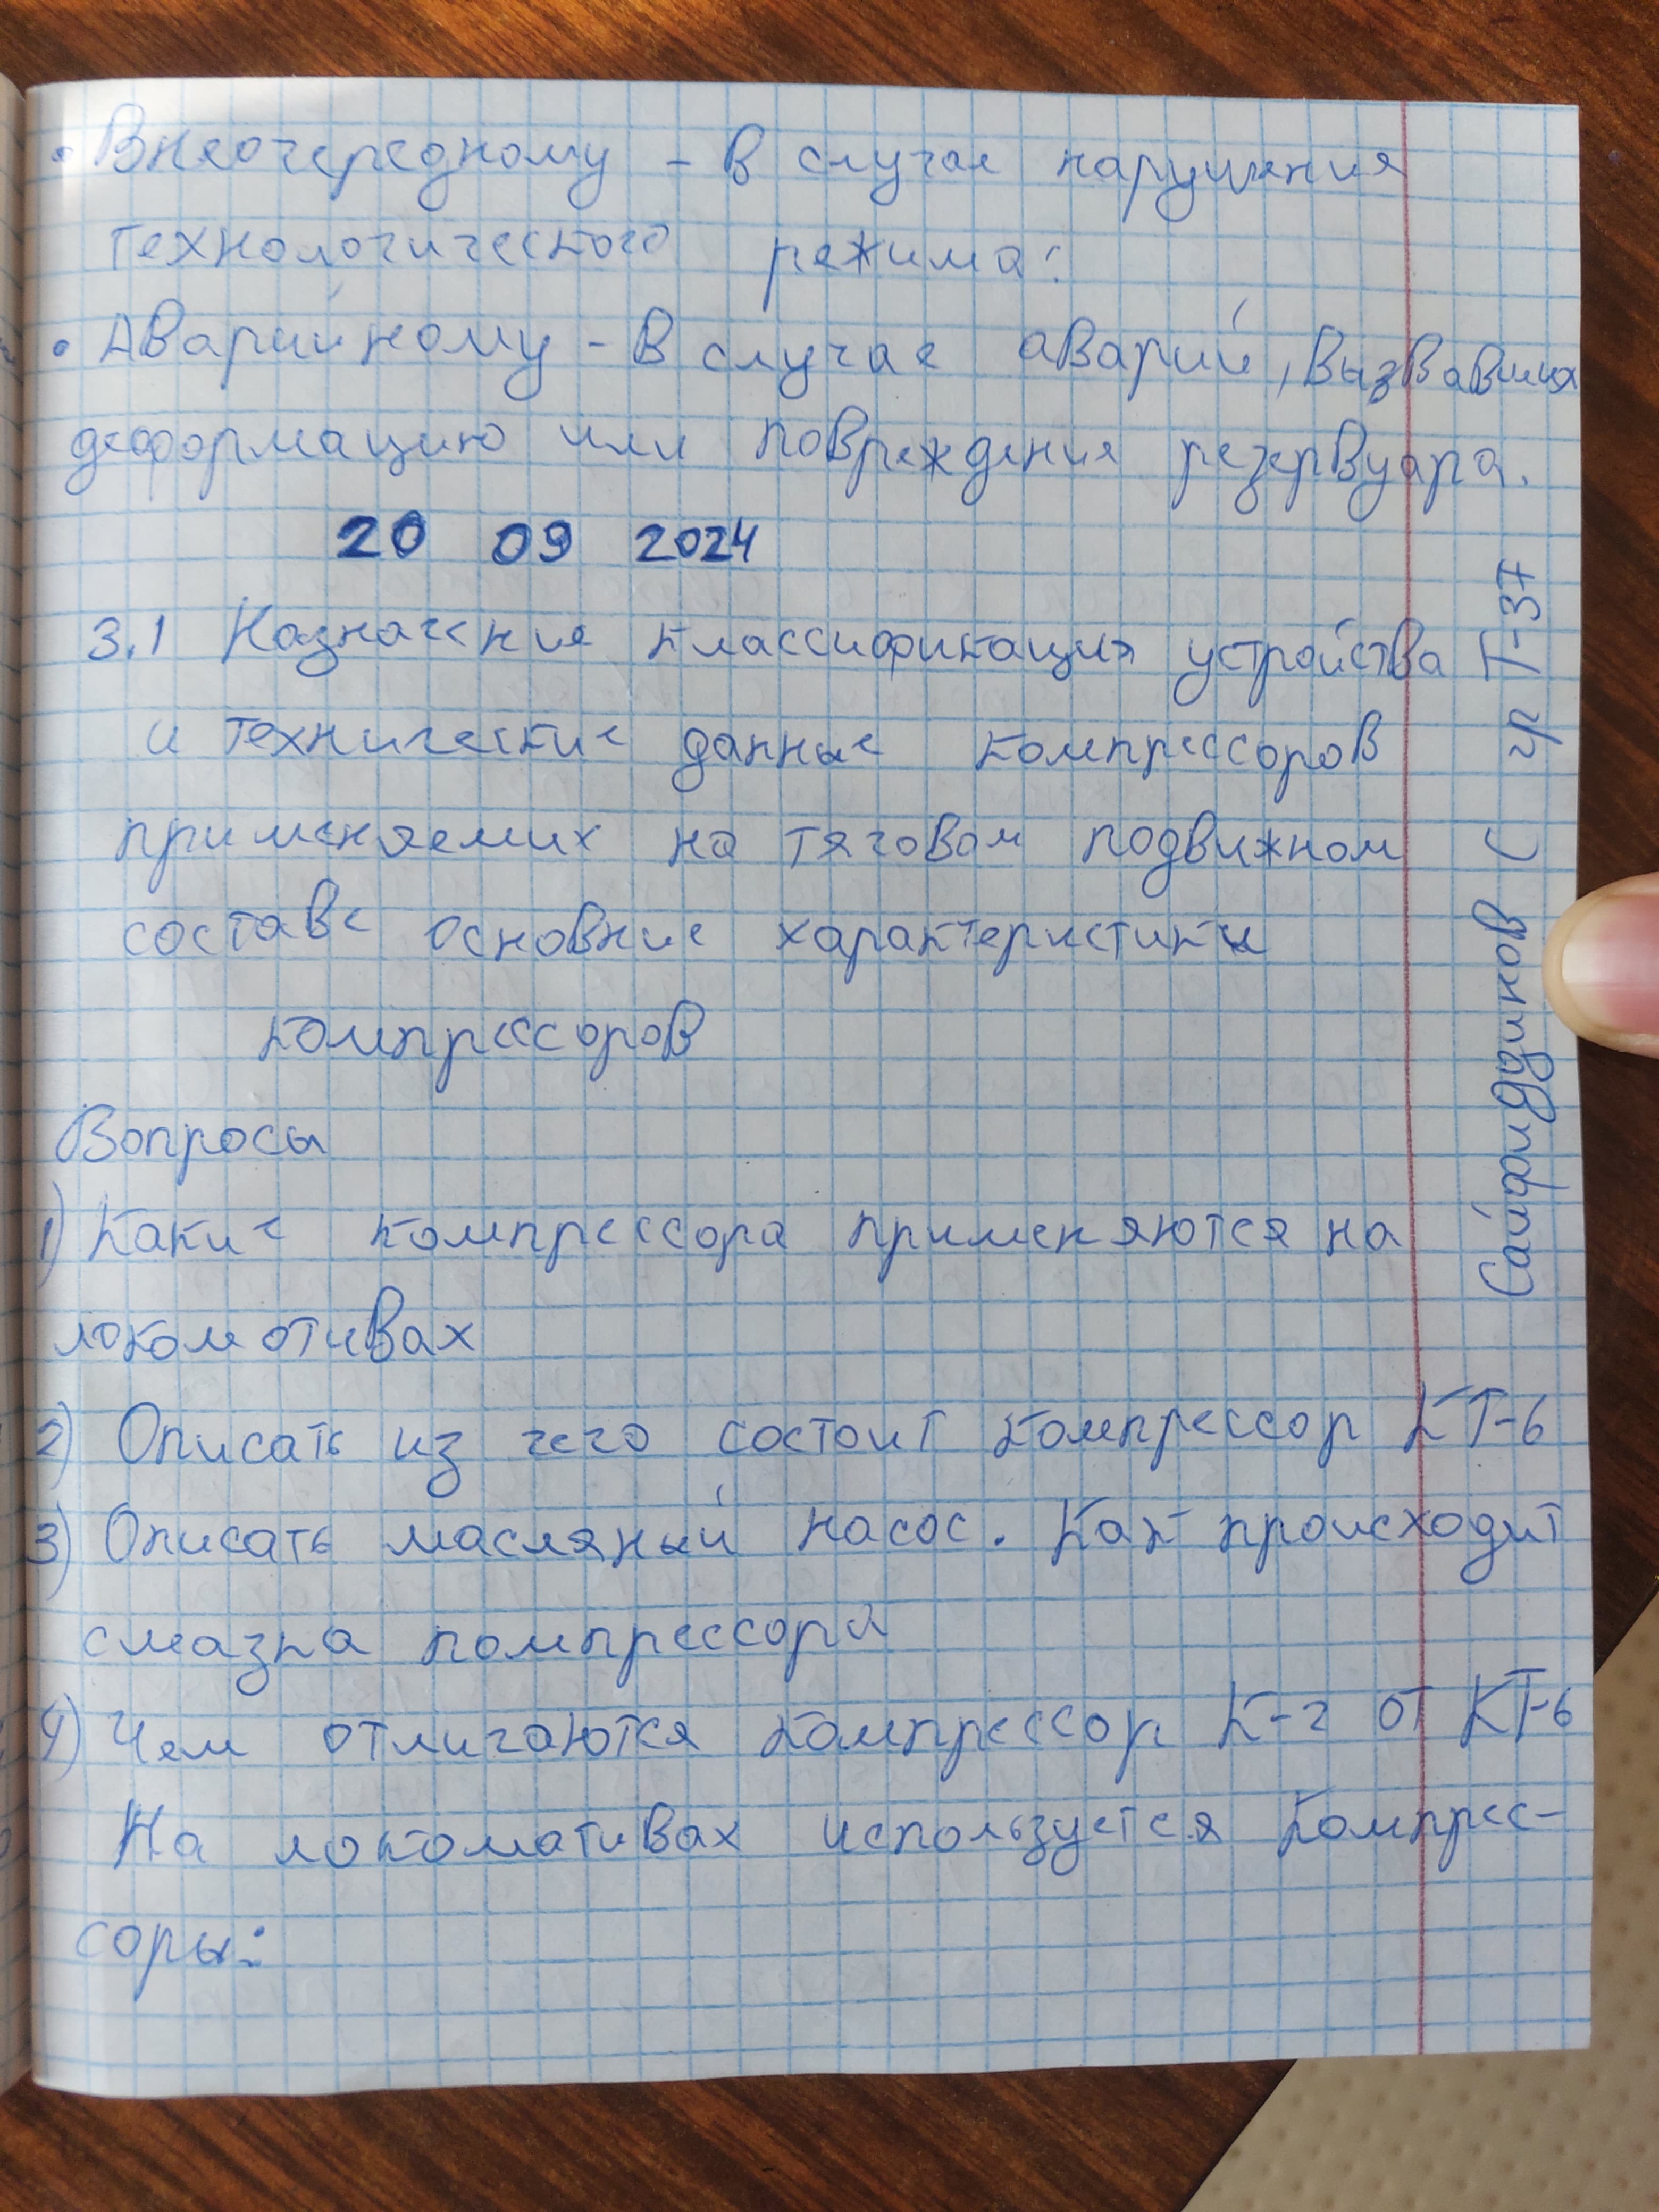 • Внеочередному - в случае нарушения
технологического режима:
• Аварийному - в случае аварий, вызвавших
деформацию или повреждения резервуара.
20 09 2024
3.1 Назначение классификация устройства
и технические данные компрессоров
применяемих на тяговом подвижном
составе основние характеристики
компрессоров
Вопросы
1) Какие компрессора применяются на
локомотивах
2) Описать из чего состоит компрессор КТ-6
3) Описать масляный насос. Как происходит
смазка компрессора
4) Чем отличаются компрессор К-2 от КТ-6
На локомативах используется компрес-
соры:
Сайфолдуинов С гр Т-37